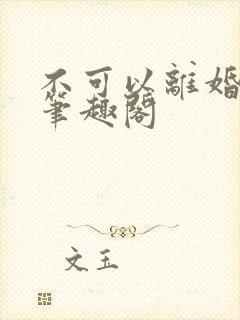 不可以離婚
筆趣閣
文玉